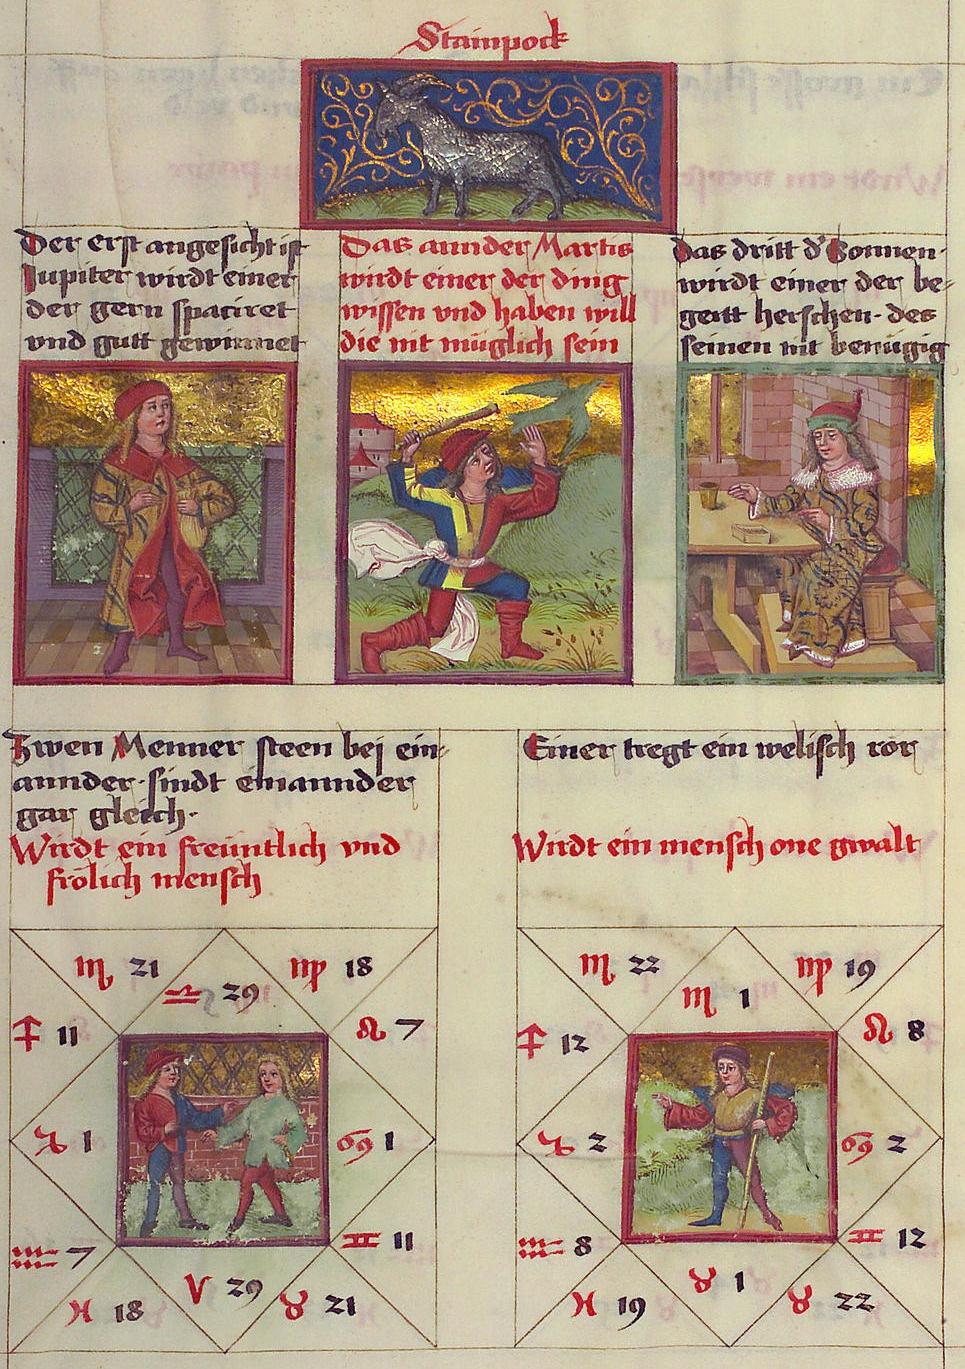 Stainpock
Der erst angesicht ist
Jupiter wirdt einer
der gern spaciret
vnd gutt gewinnet
Das annder Martis
wirdt einer der ding
wissen vnd haben will
die nit müglich sein
Das dritt d' Sonnen·
wirdt einer der be-
gertt herschen· des
seinen nit benügig
Zwen Menner steen bej ein-
annder· sindt einannder
gar gleich·
Wirdt ein freüntlich vnd
frölich mensch
♏ 21
♎ 29
♍ 18
♐ 11
♌ 7
♑ 1
♋ 1
♒ 7
♊ 11
♓ 18
♈ 29
♉ 21
Einer tregt ein welisch ror
Wirdt ein mensch one gwalt
♏ 22
♏ 1
♍ 19
♐ 12
♌ 8
♑ 2
♋ 2
♒ 8
♊ 12
♓ 19
♉ 1
♉ 22